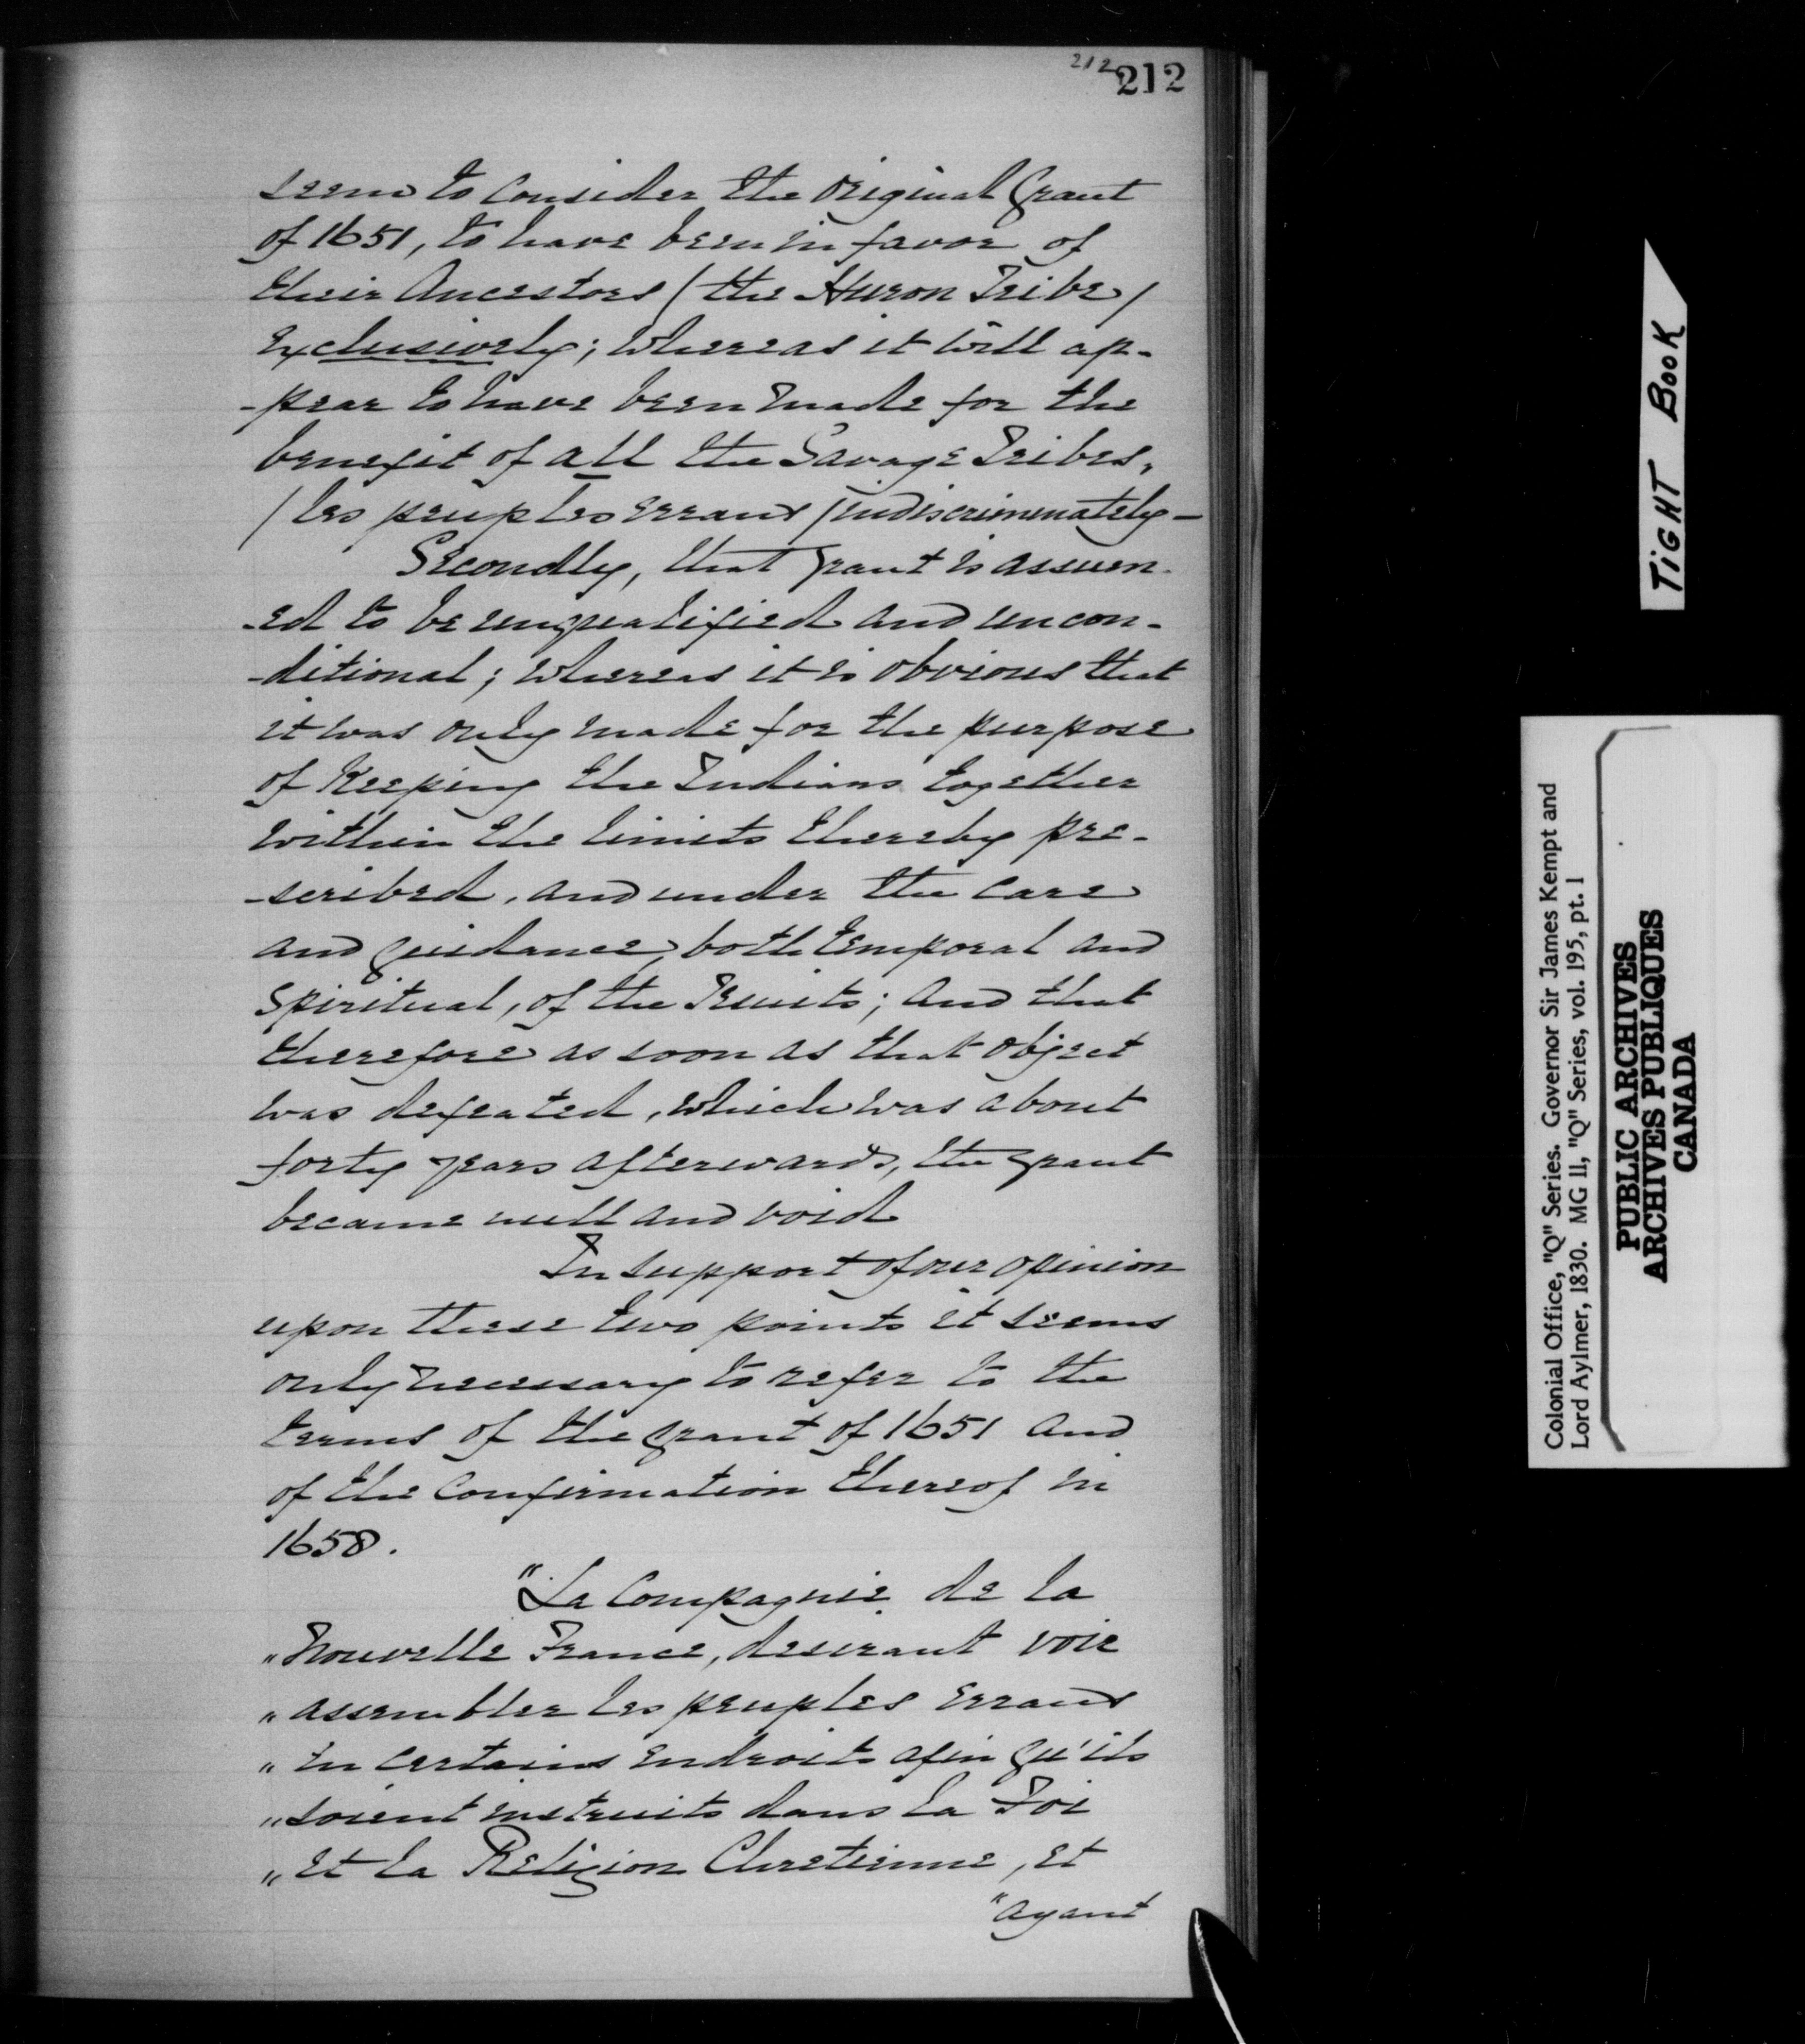 212 212
seem to consider the original Grant
of 1651, to have been in favor of
their Ancestors (the Huron Tribe)
exclusively; whereas it will ap-
-pear to have been made for the
benefit of all the Savage Tribes,
(les peuples errans) indiscriminately -
Secondly, that grant is assum-
-ed to be unqualified and uncon-
-ditional; whereas it is obvious that
it was only made for the purpose
of Keeping the Indians together
within the limits thereby pre-
-scribed, and under the care
and guidance, both temporal and
spiritual, of the Jesuits; and that
therefore as soon as that object
was defeated, which was about
forty years afterwards, the grant
became null and void
In support of our opinion
upon these two points it seems
only necessary to refer to the
terms of the grant of 1651 and
of the Confirmation thereof in
1658.
"La Compagnie de la
"Nouvelle France, desirant voir
"assembler les peuples errans
"en certains endroits afin qu'ils
"soient instruits dans la Foi
"et la Religion Chretienne, et
"ayant
TIGHT BOOK
Colonial Office, "Q" Series. Governor Sir James Kempt and
Lord Aylmer, 1830. MG 11, "Q" Series, vol. 195, pt. 1
PUBLIC ARCHIVES
ARCHIVES PUBLIQUES
CANADA